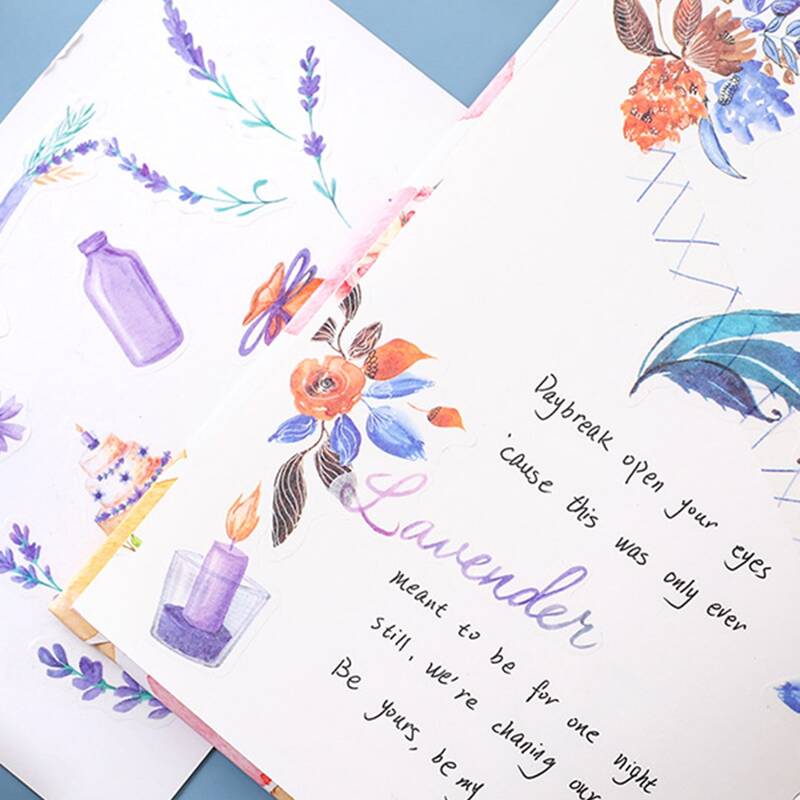 Daybreak open your eyes
'cause this was only ever
Lavender
meant to be for one night
still, we're chaning our
Be yours, be my